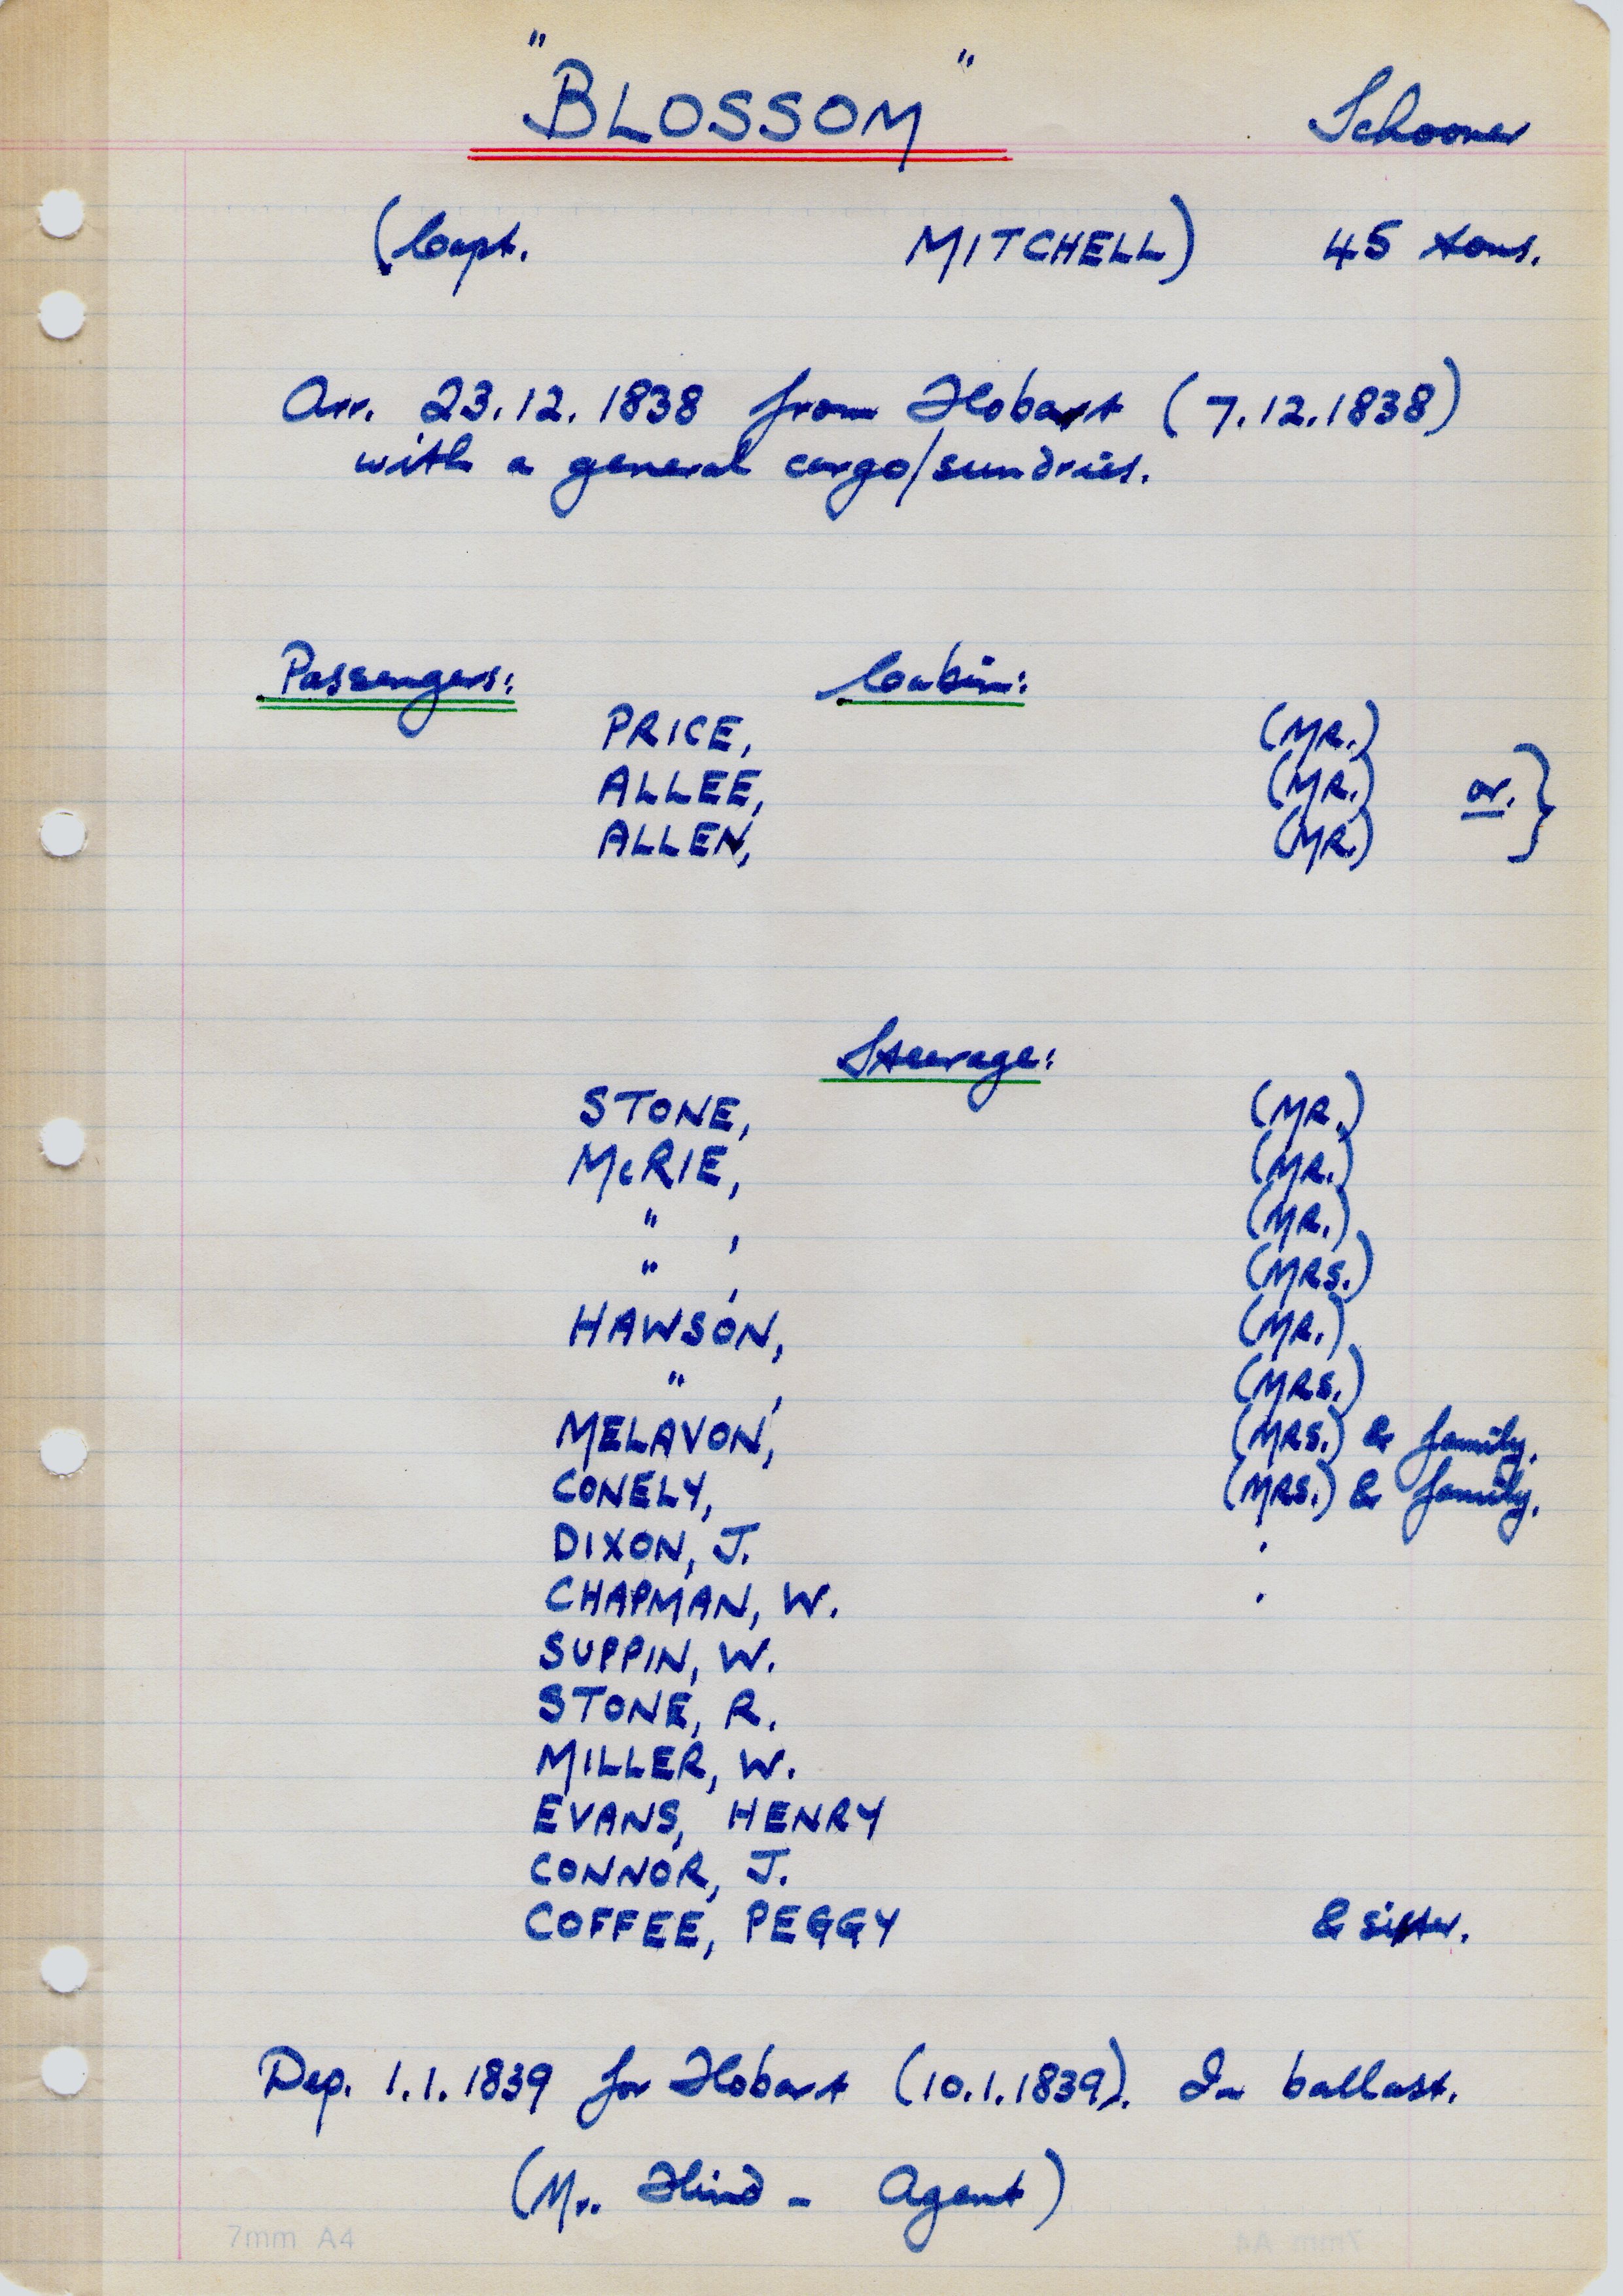 "BLOSSOM" Schooner
(Capt. MITCHELL) 45 tons.
Arr. 23.12.1838 from Hobart (7.12.1838)
with a general cargo/sundries.
Passengers: Cabin:
PRICE, (MR.)
ALLEE, (MR.) or. }
ALLEN, (MR.)
Steerage:
STONE, (MR.)
McRIE, (MR.)
" , (MR.)
" , (MRS.)
HAWSON, (MR.)
" , (MRS.)
MELAVON, (MRS.) & family.
CONELY, (MRS.) & family.
DIXON, J. .
CHAPMAN, W. .
SUPPIN, W.
STONE, R.
MILLER, W.
EVANS, HENRY
CONNOR, J.
COFFEE, PEGGY & sister.
Dep. 1.1.1839 for Hobart (10.1.1839). In ballast.
(Mr. Hind - Agent)
7mm A4